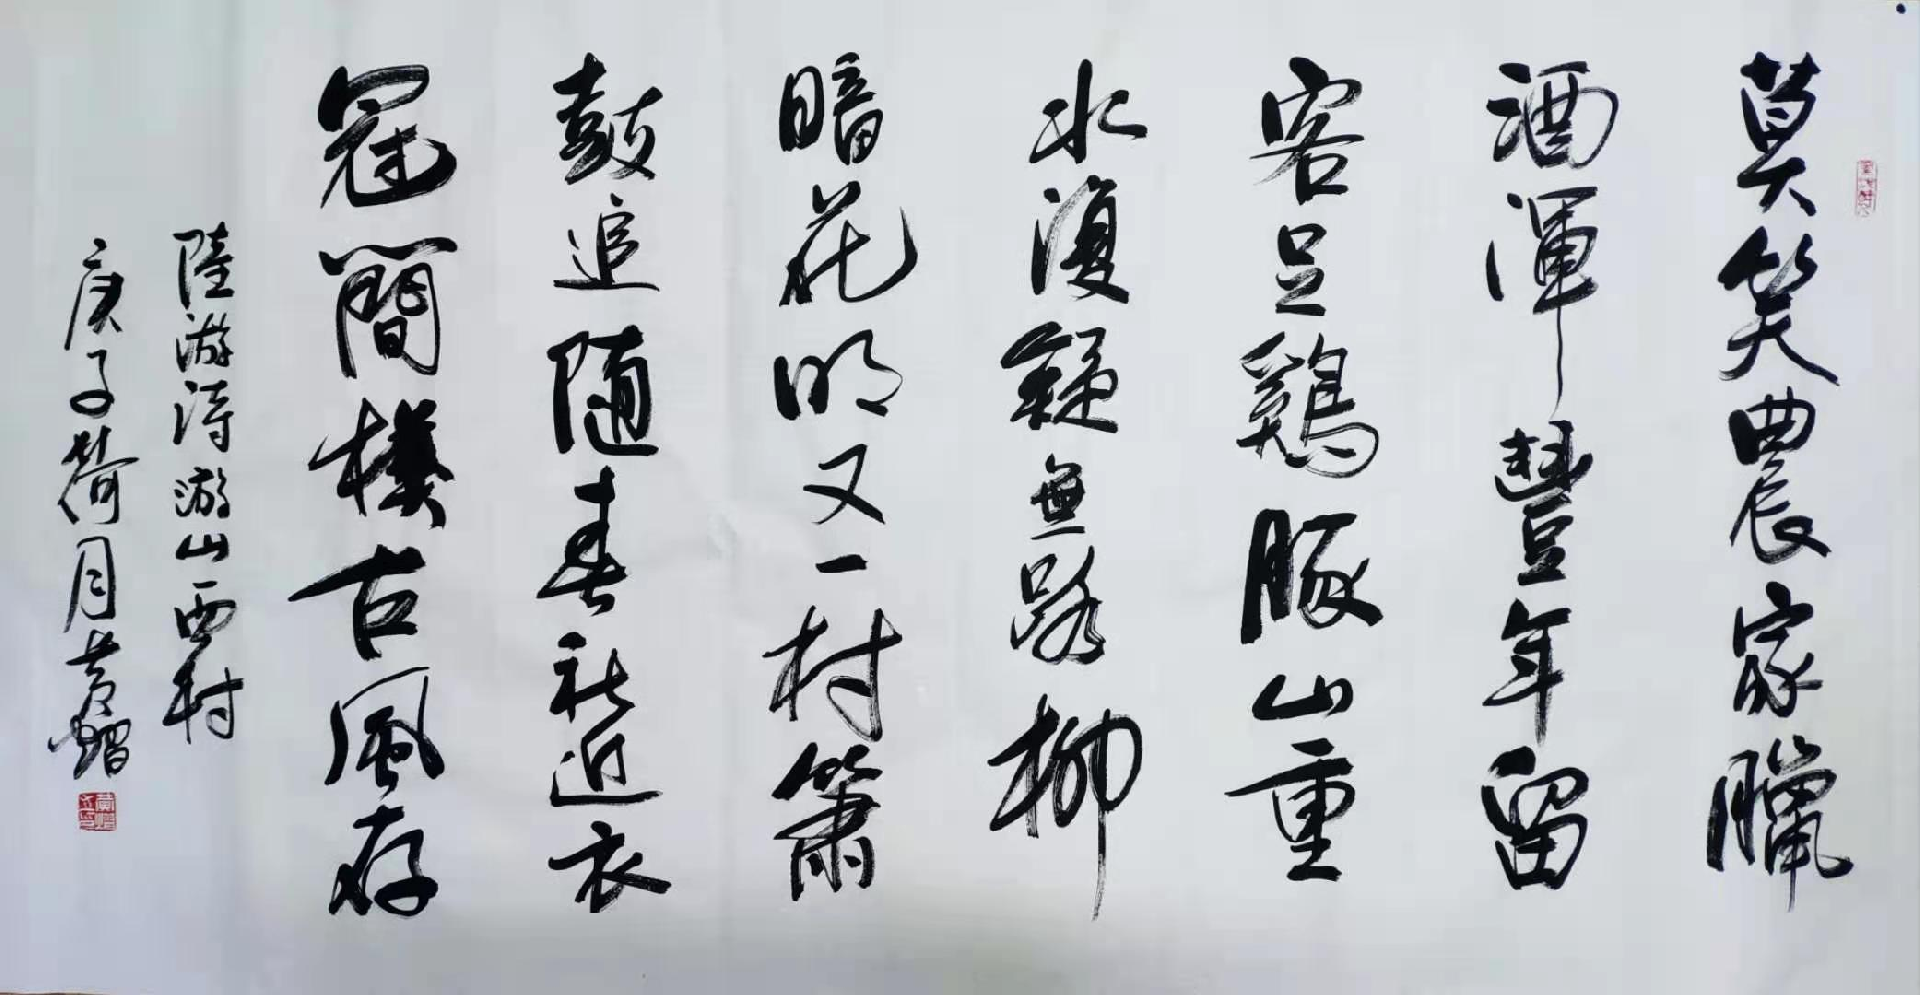 莫笑農家臘
酒渾豐年留
客足鷄豚山重
水復疑無路柳
暗花明又一村簫
鼓追随春社近衣
冠簡樸古風存
陸游詩游山西村
庚子荷月黄